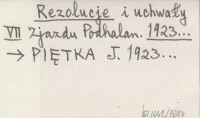 Rezolucje i uchwały
VII Zjazdu Podhalan. 1923...
→ PIĘTKA J. 1923...